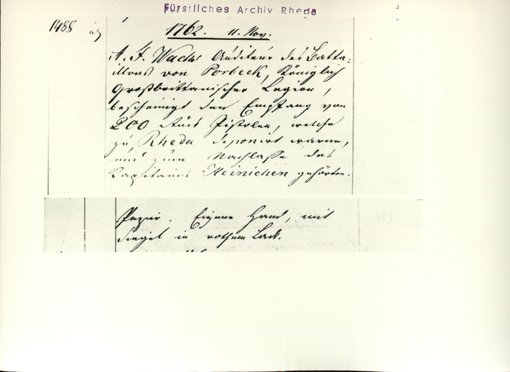 Fürstliches Archiv Rheda
1488
1762. 11. Nov.
A. F. Wachs Auditeur des Batta-
illons von Porbeck, Königlich
Großbrittanischer Legion,
bescheinigt den Empfang von
200 Stück Pistolen, welche
zu Rheda deponirt waren,
und zum Nachlasse des
Kapitains Heinichen gehörten.
Papier. Eigene Hand, mit
Siegel in rothem Lack.